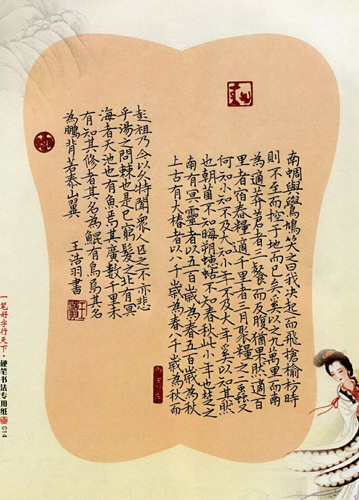 南蜩與鷽鳩笑之曰我決起而飛搶榆枋時
則不至而控于地而已矣奚以之九萬里而南
為適莽蒼者三餐而反腹猶果然適百
里者宿舂糧適千里者三月聚糧之二蟲又
何知小知不及大知小年不及大年奚以知其然
也朝菌不知晦朔蟪蛄不知春秋此小年也楚之
南有冥靈者以五百歲為春五百歲為秋
上古有大椿者以八千歲為春八千歲為秋而
彭祖乃今以久特聞眾人匹之不亦悲
乎湯之問棘也是已窮髮之北有冥
海者天池也有魚焉其廣數千里未
有知其修者其名為鯤有鳥焉其名
為鵬背若泰山翼
王浩羽書
一笔好字行天下·硬笔书法专用纸 C14